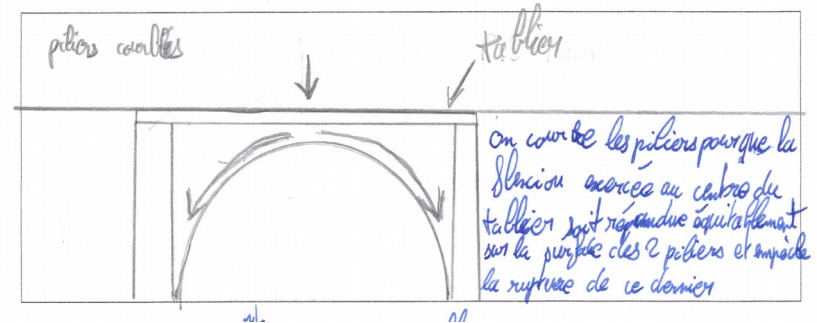 piliers courbés
tablier
on courbe les piliers pour que la
flexion exercée au centre du
tablier soit répandue équitablement
sur la surface des 2 piliers et empêche
la rupture de ce dernier